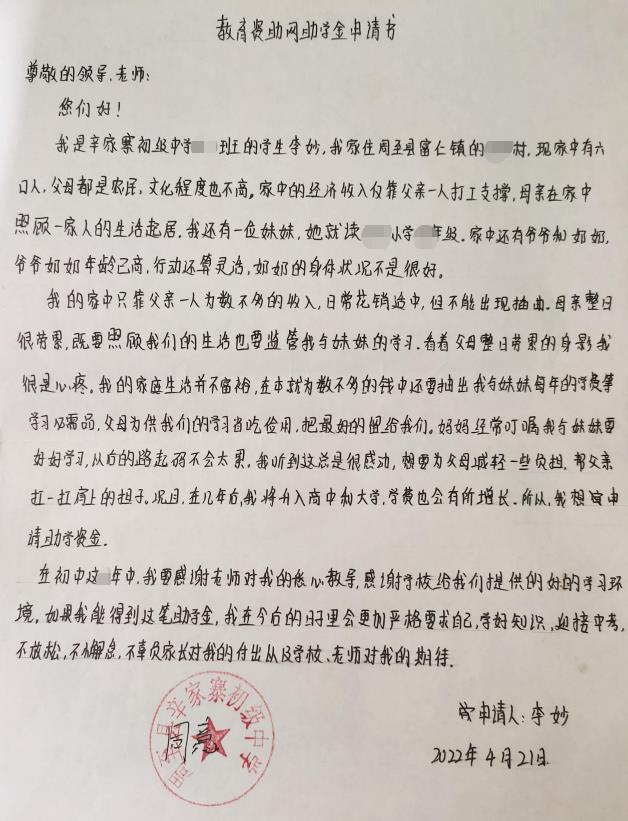 教育资助网助学金申请书
尊敬的领导、老师:
您们好!
我是辛家寨初级中学 班的学生李妙,我家住周至县富仁镇的 村,现家中有六
口人,父母都是农民,文化程度也不高。家中的经济收入仅靠父亲一人打工支撑,母亲在家中
照顾一家人的生活起居。我还有一位妹妹,她就读 小学 年级。家中还有爷爷和奶奶,
爷爷奶奶年龄已高,行动还算灵活,奶奶的身体状况不是很好。
我的家中只靠父亲一人为数不多的收入,日常花销适中,但不能出现抽曲。母亲整日
很劳累,既要照顾我们的生活也要监管我与妹妹的学习。看着父母整日劳累的身影我
很是心疼。我的家庭生活并不富裕,在本就为数不多的钱中还要抽出我与妹妹每年的学费等
学习必需品,父母为供我们的学习省吃俭用,把最好的留给我们。妈妈经常叮嘱我与妹妹要
好好学习,以后的路起码不会太累。我听到这总是很感动,想要为父母减轻一些负担,帮父亲
扛一扛肩上的担子。况且,在几年后,我将升入高中和大学,学费也会有所增长。所以,我想申
请助学资金。
在初中这 年中,我要感谢老师对我的核心教导,感谢学校给我们提供的好的学习环
境。如果我能得到这笔助学金,我在今后的日子里会更加严格要求自己,学好知识,迎接中考,
不放松,不懈怠,不辜负家长对我的付出以及学校、老师对我的期待。
周至县辛家寨初级中学
周亮
申请人:李妙
2022年4月21日